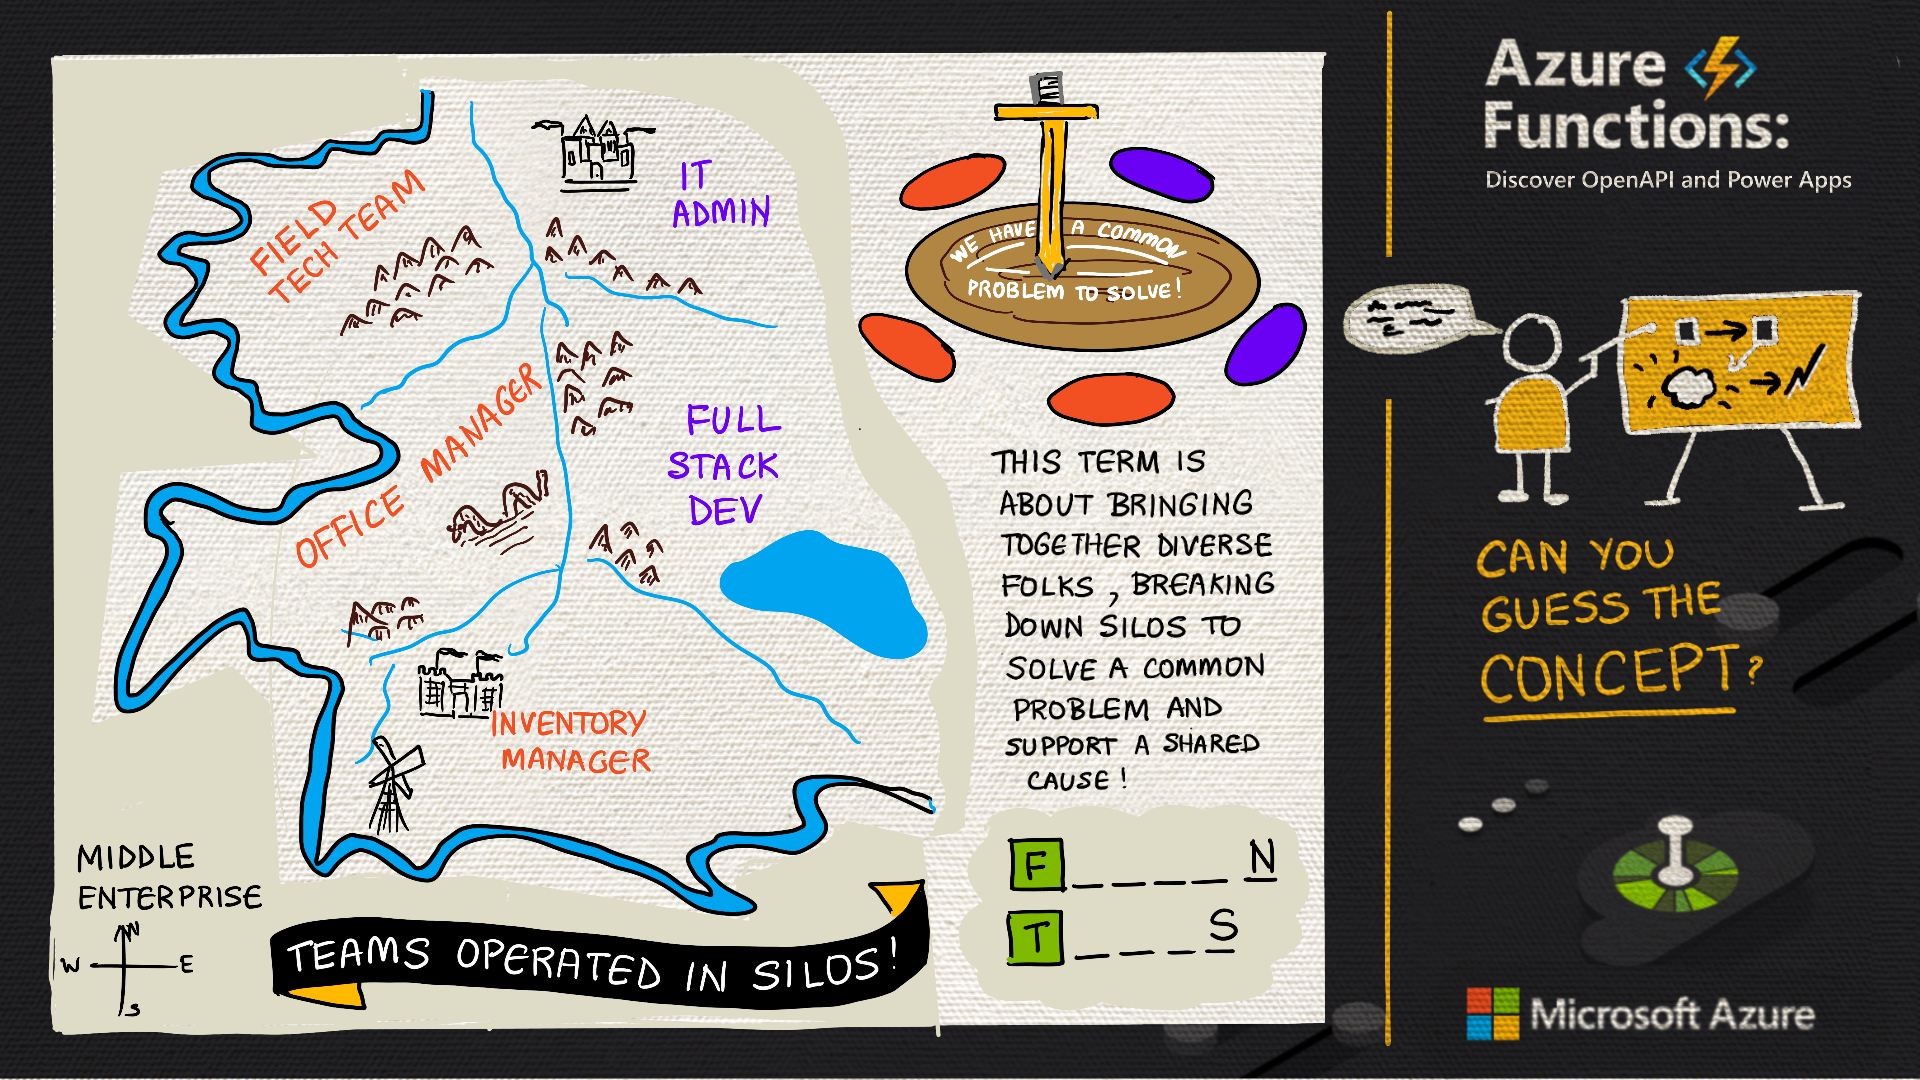 FIELD
TECH TEAM
IT
ADMIN
OFFICE MANAGER
FULL
STACK
DEV
INVENTORY
MANAGER
MIDDLE
ENTERPRISE
N
W E
S
TEAMS OPERATED IN SILOS!
WE HAVE A COMMON
PROBLEM TO SOLVE!
THIS TERM IS
ABOUT BRINGING
TOGETHER DIVERSE
FOLKS, BREAKING
DOWN SILOS TO
SOLVE A COMMON
PROBLEM AND
SUPPORT A SHARED
CAUSE!
F _ _ _ _ N
T _ _ _ S
Azure
Functions:
Discover OpenAPI and Power Apps
CAN YOU
GUESS THE
CONCEPT?
Microsoft Azure